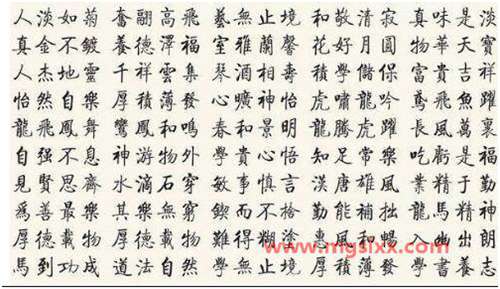 人淡如菊 奮翮高飛 藝無止境 和敬清寂 真味是淡
真金不鍍 養德澤福 室雅蘭馨 花好月圓 物華天寶
人杰地靈 千祥雲集 琴酒相壽 積學儲保 富貴吉祥
怡然自樂 厚積薄發 心曠神怡 虎嘯龍吟 鳶飛魚躍
龍飛鳳舞 鸞鳳和鳴 春和景明 龍騰虎躍 長風萬裏
自强不息 神游物外 學貴心悟 知足常樂 吃虧是福
見賢思齊 水滴石穿 敏事慎言 漢唐雄風 業精于勤
爲善最樂 其樂無窮 鍥而不捨 勤能補拙 龍馬精神
厚德載物 厚德載物 難得糊塗 惠風和暢 入幽出朗
馬到功成 道法自然 學無止境 厚積薄發 學書養志
www.mgsixx.com